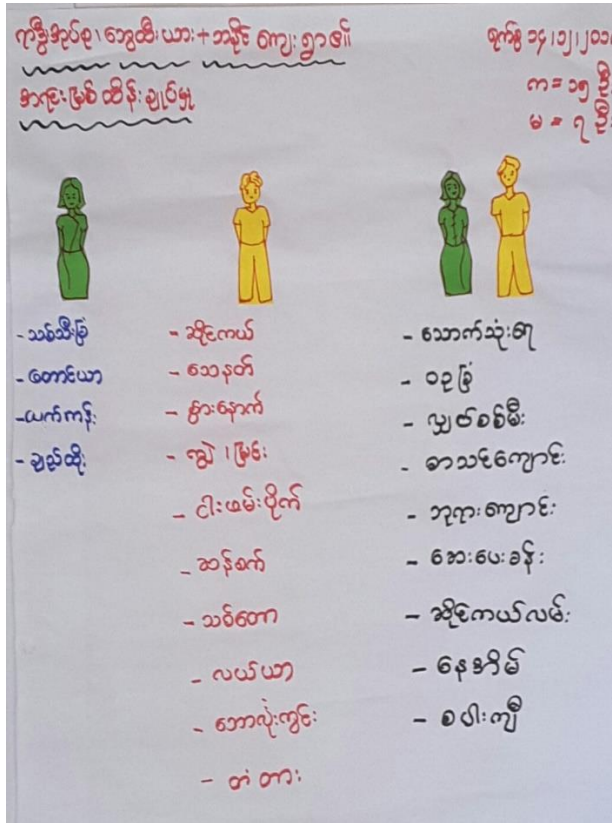 ကဒွဲအုပ်စု၊ ဘွေထီးယား+ဘနိုင် ကျေးရွာ၏
အရင်းမြစ် ထိန်းချုပ်မှု
ရက်စွဲ ၁၄၊၁၂၊၂၀၁
က = ၁၅ ဦး
မ = ၇ ဦး
- သစ်သီးခြံ
- တောင်ယာ
- ယက်ကန်း
- ချည်ထိုး
- ဆိုင်ကယ်
- သေနတ်
- စွားနောက်
- ကျွဲ ၊ မြင်း
- ငါးဖမ်းပိုက်
- ဆန်စက်
- သစ်တော
- လယ်ယာ
- ဘောလုံးကွင်း
- တံတား
- သောက်သုံးရေ
- ဝဥခြံ
- လျှပ်စစ်မီး
- စာသင်ကျောင်း
- ဘုရားကျောင်း
- ဆေးပေးခန်း
- ဆိုင်ကယ်လမ်း
- နေအိမ်
- စပါးကျီ